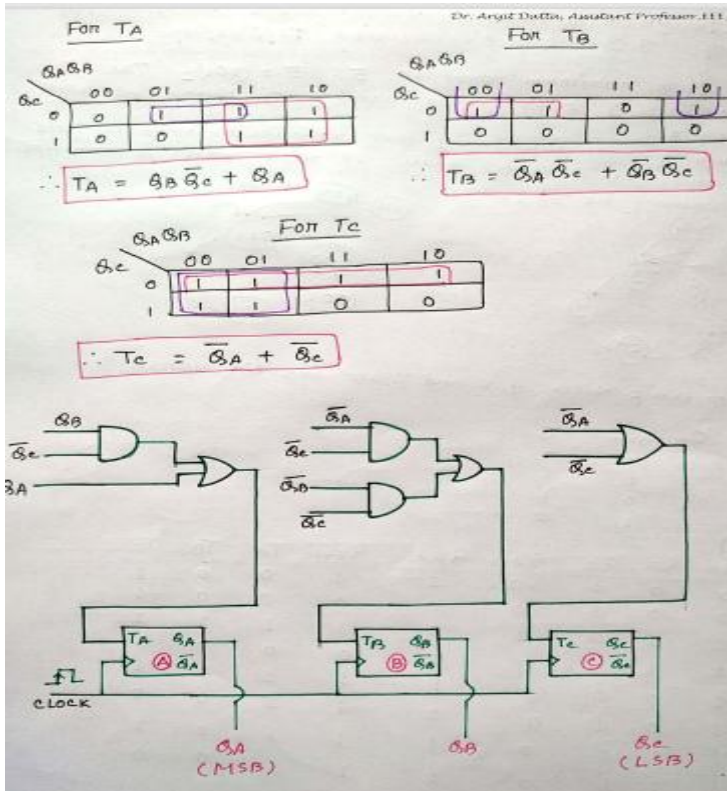 Dr. Arijit Dutta, Assistant Professor
For TA
QA QB
QC
00 01 11 10
0 0 1 1 1
1 0 0 1 1
∴ TA = QB Q̅C + QA
For TB
QA QB
QC
00 01 11 10
0 1 1 0 1
1 0 0 0 0
∴ TB = Q̅A Q̅C + Q̅B Q̅C
For TC
QA QB
QC
00 01 11 10
0 1 1 1 1
1 1 1 0 0
∴ TC = Q̅A + Q̅C
QB
Q̅C
QA
Q̅A
Q̅C
Q̅B
Q̅C
Q̅A
Q̅C
TA QA
A Q̅A
TB QB
B Q̅B
TC QC
C Q̅C
CLOCK
QA
(MSB)
QB
QC
(LSB)